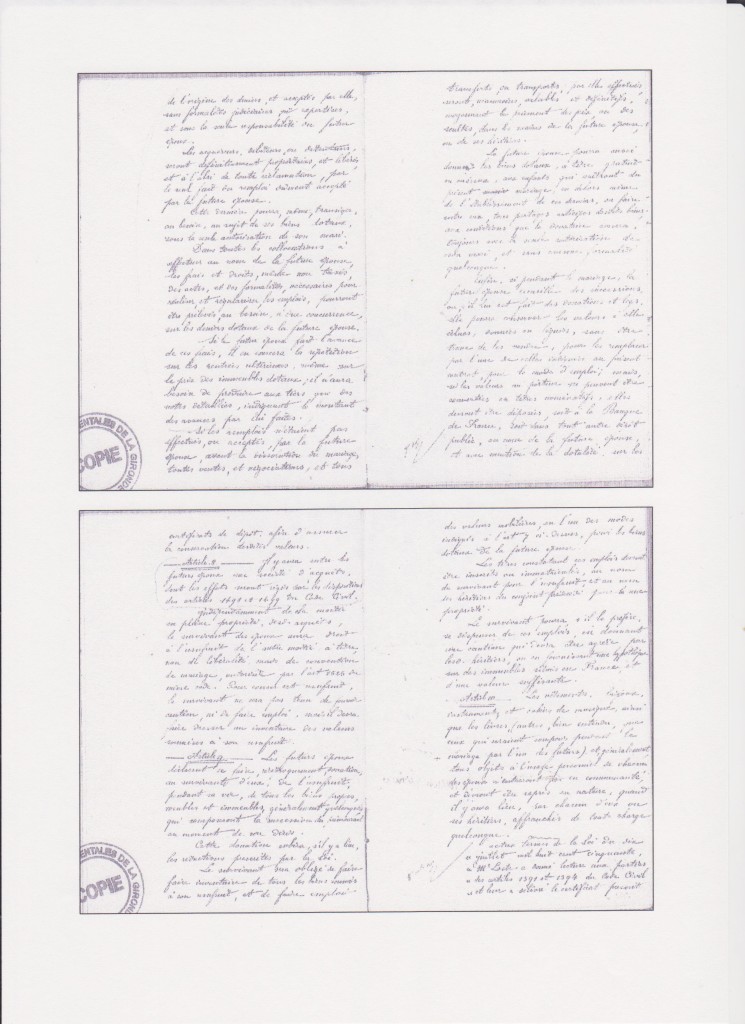 de l'origine des deniers, et acceptés par elle,
sans formalités judiciaires ni expertises,
et sous la seule responsabilité du futur
époux.
Les acquéreurs, débiteurs, ou détenteurs,
seront définitivement propriétaires, et libérés,
et à l'abri de toute réclamation, par
le seul fait du remploi dûment accepté
par la future épouse.
Cette dernière pourra, même, transiger,
au besoin, au sujet de ses biens dotaux,
sous la seule autorisation de son mari.
Dans toutes les collocations à
effectuer au nom de la future épouse,
les frais et droits, même non taxés,
des actes, et des formalités, nécessaires pour
réaliser et régulariser les emplois, pourront
être prélevés, au besoin, à due concurrence,
sur les deniers dotaux de la future épouse.
Si le futur époux fait l'avance
de ces frais, il en exercera la répétition
sur des rentrées ultérieures, même sur
le prix des immeubles dotaux; il n'aura
besoin de produire aux tiers que des
notes détaillées, indiquant le montant
des avances par lui faites.
Si les remplois n'étaient pas
effectués, ou acceptés, par la future
épouse, avant la dissolution du mariage,
toutes ventes, et négociations, et tous
transferts, ou transports, par elle effectués
seront, néanmoins, valables et définitifs,
moyennant le paiement des prix, ou des
soultes, dans les mains de la future épouse,
ou de ses héritiers.
La future épouse pourra aussi
donner les biens dotaux, à titre gratuit
en mariage, aux enfants qui naîtront du
présent mariage, en dehors même
de l'établissement de ces derniers, ou faire
entre eux, des partages anticipés desdits biens
aux conditions que la donatrice avisera,
toujours sous la seule autorisation de
son mari, et sans aucune formalité
quelconque.
Enfin, si pendant le mariage, la
future épouse recueille des successions
ou, s'il lui est fait des donations et legs,
elle pourra conserver les valeurs à elle
échues, données ou léguées, sans être
tenue de les vendre, pour les remplacer
par l'une de celles indiquées au présent
contrat pour le mode d'emploi; mais,
si les valeurs au porteur ne peuvent être
converties en titres nominatifs, elles
devront être déposées, soit à la Banque
de France, soit dans tout autre dépôt
public, au nom de la future épouse,
et une mention de la dotalité sur les
certificats de dépôt, afin d'assurer
la conservation desdites valeurs.
Article 8 Il y aura entre les
futurs époux une société d'acquêts,
dont les effets seront régis par les dispositions
des articles 1498 et 1499 du Code Civil.
Indépendamment de la moitié
en pleine propriété, desdits acquêts,
le survivant des époux aura droit
à l'usufruit de l'autre moitié à titre,
non de libéralité, mais de convention
de mariage, autorisée par l'art 1525 du
même code. Pour raison de cet usufruit,
le survivant ne sera pas tenu de fournir
caution, ni de faire emploi, mais il devra
faire dresser un inventaire des valeurs
soumises à son usufruit.
Article 9 Les futurs époux
déclarent se faire, réciproquement donation,
au survivant d'eux, de l'usufruit,
pendant sa vie, de tous les biens propres,
meubles et immeubles, généralement quelconques,
qui composeront la succession du prémourant
au moment de son décès.
Cette donation subira, s'il y a lieu,
les réductions prescrites par la loi.
Le survivant sera obligé de faire
faire inventaire de tous les biens soumis
à son usufruit, et de faire emploi
des valeurs mobilières, en l'un des modes
indiqués à l'art 7 ci-dessus, pour les biens
dotaux de la future épouse.
Les titres constatant ces emplois devront
être inscrits ou immatriculés, au nom
du survivant pour l'usufruit, et au nom
des héritiers du conjoint prédécédé pour la nue
propriété.
Le survivant pourra, s'il le préfère,
se dispenser de ces emplois, en donnant
une caution qui devra être agréée par
les héritiers, ou en fournissant une hypothèque
sur des immeubles situés en France et
d'une valeur suffisante.
Article 10 Les vêtements, bijoux,
instruments et cahiers de musique, ainsi
que les livres (autres, bien entendu, que
ceux qui seraient composés pendant le
mariage par l'un des futurs) et généralement
tous objets à l'usage personnel de chacun
des époux n'entreront pas en communauté,
et devront être repris en nature, quand
il y aura lieu, par chacun d'eux ou
ses héritiers, affranchis de toute charge
quelconque.
Aux termes de la Loi du dix
juillet mil huit cent cinquante,
Me Loste a donné lecture aux parties
des articles 1391 et 1394 du Code Civil
et leur a délivré le certificat prescrit
MENTALES DE LA GIRONDE
COPIE
MENTALES DE LA GIRONDE
COPIE